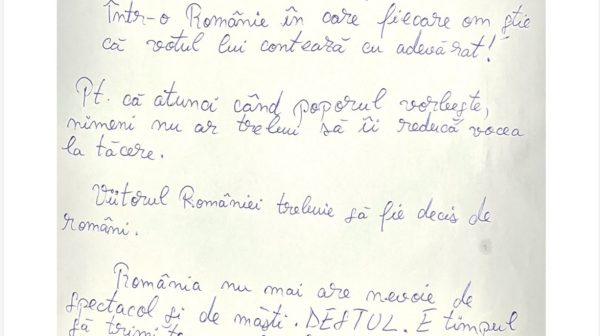 Într-o Românie în care fiecare om știe
că votul lui contează cu adevărat!
Pt. că atunci când poporul vorbește,
nimeni nu ar trebui să îi reducă vocea
la tăcere.
Viitorul României trebuie să fie decis de
români.
România nu mai are nevoie de
spectacol și de măști. DESTUL. E timpul
să